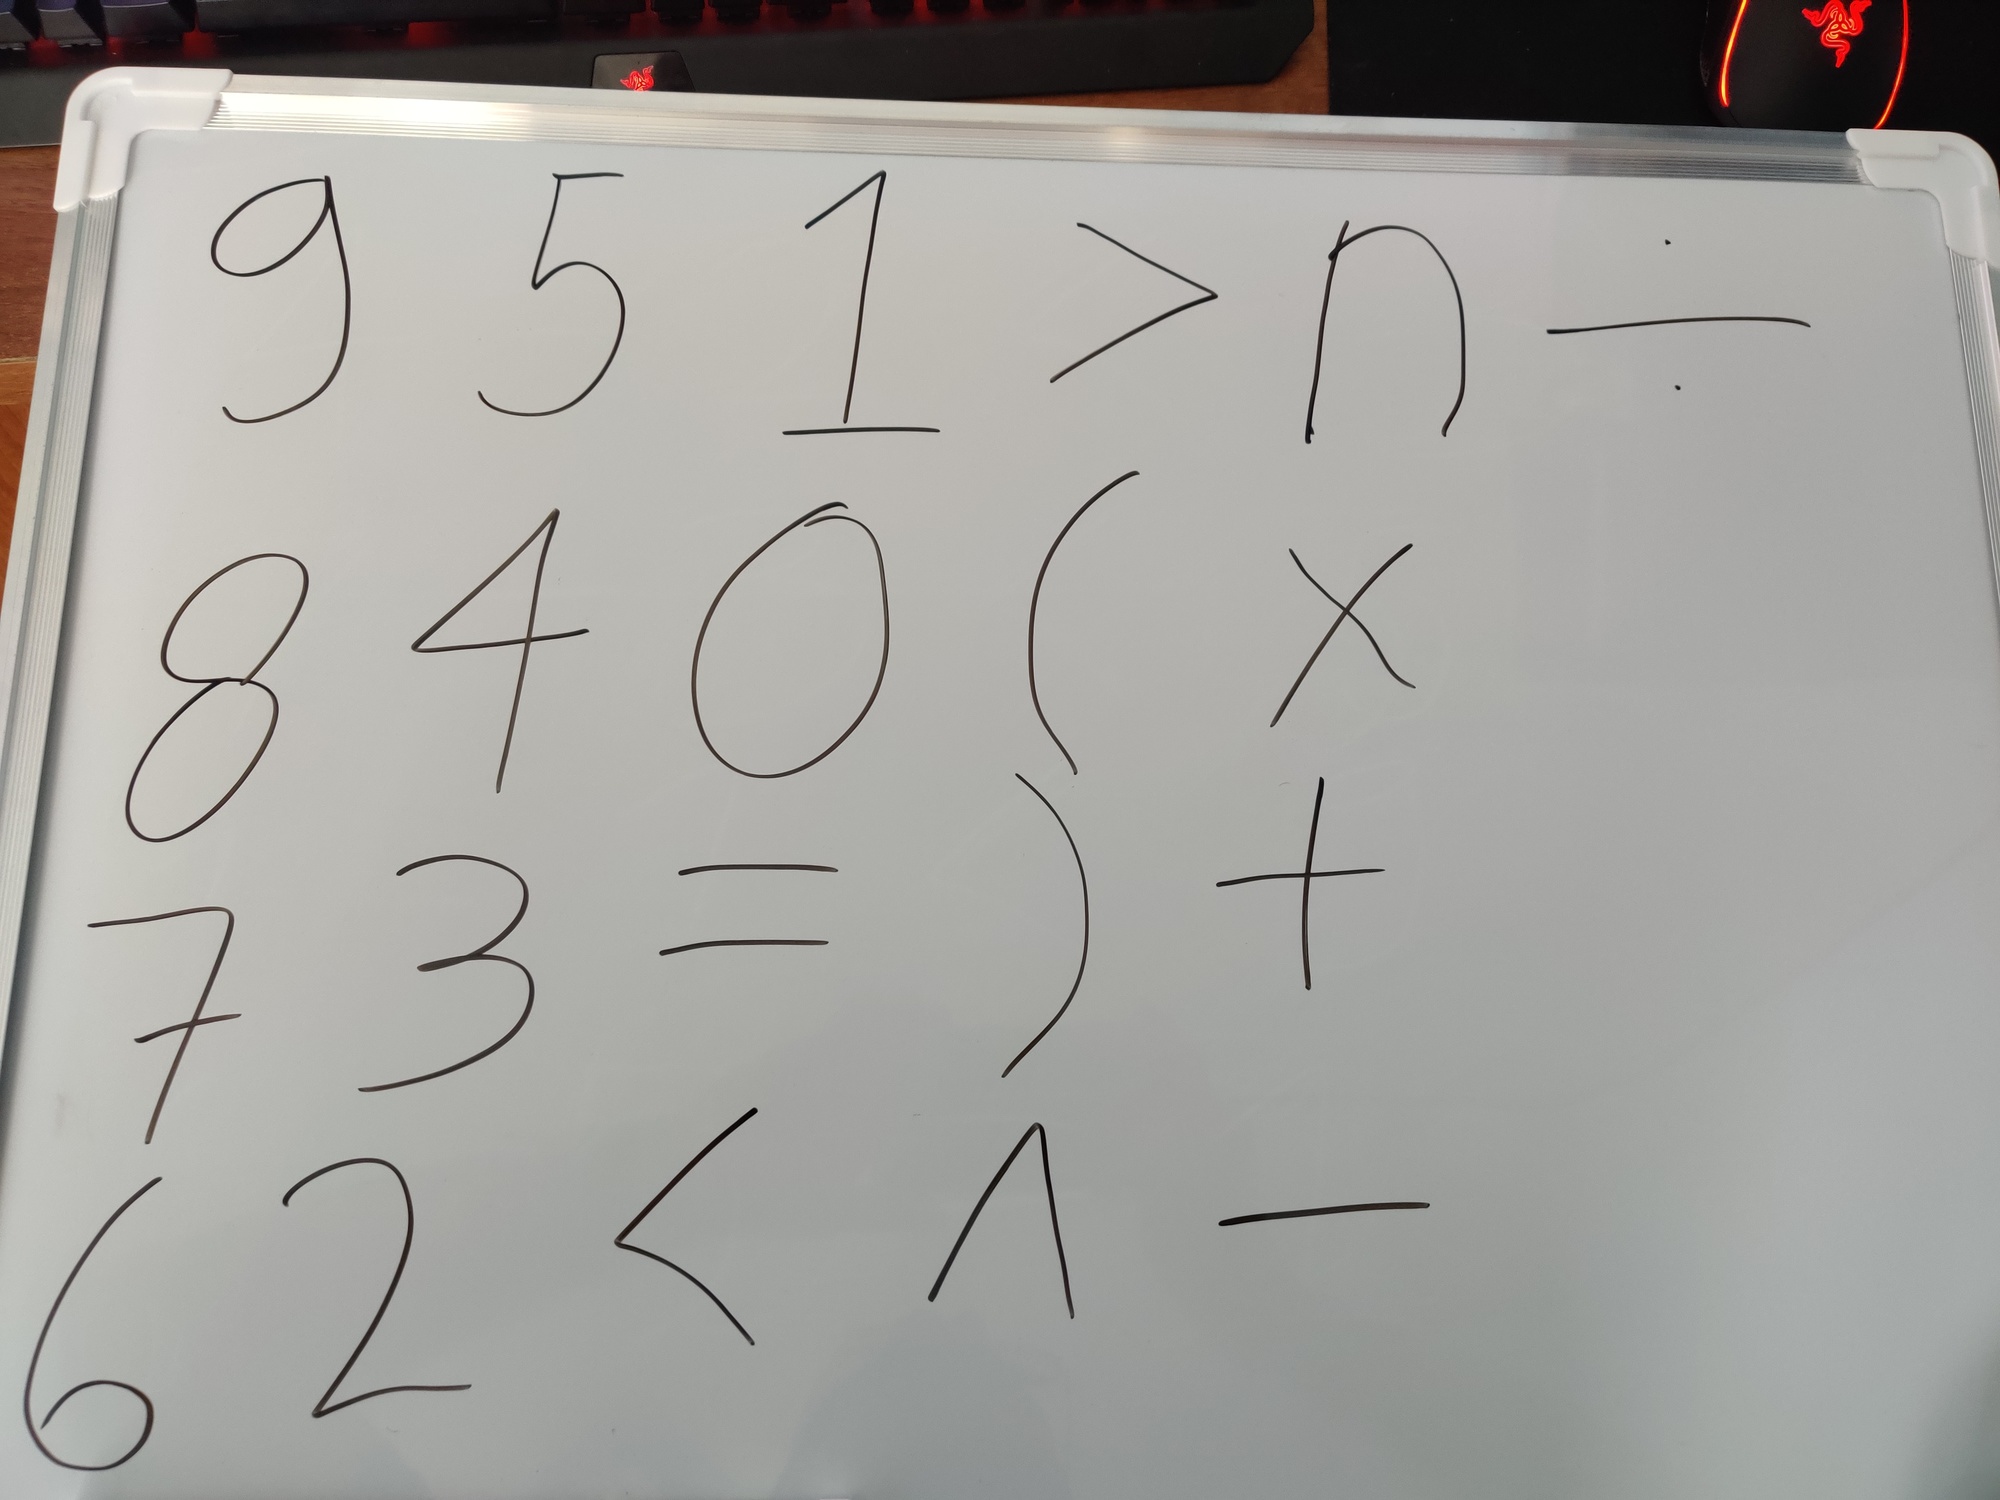 9 5 1 > n ÷
8 4 0 ( x
7 3 = ) +
6 2 < ^ -